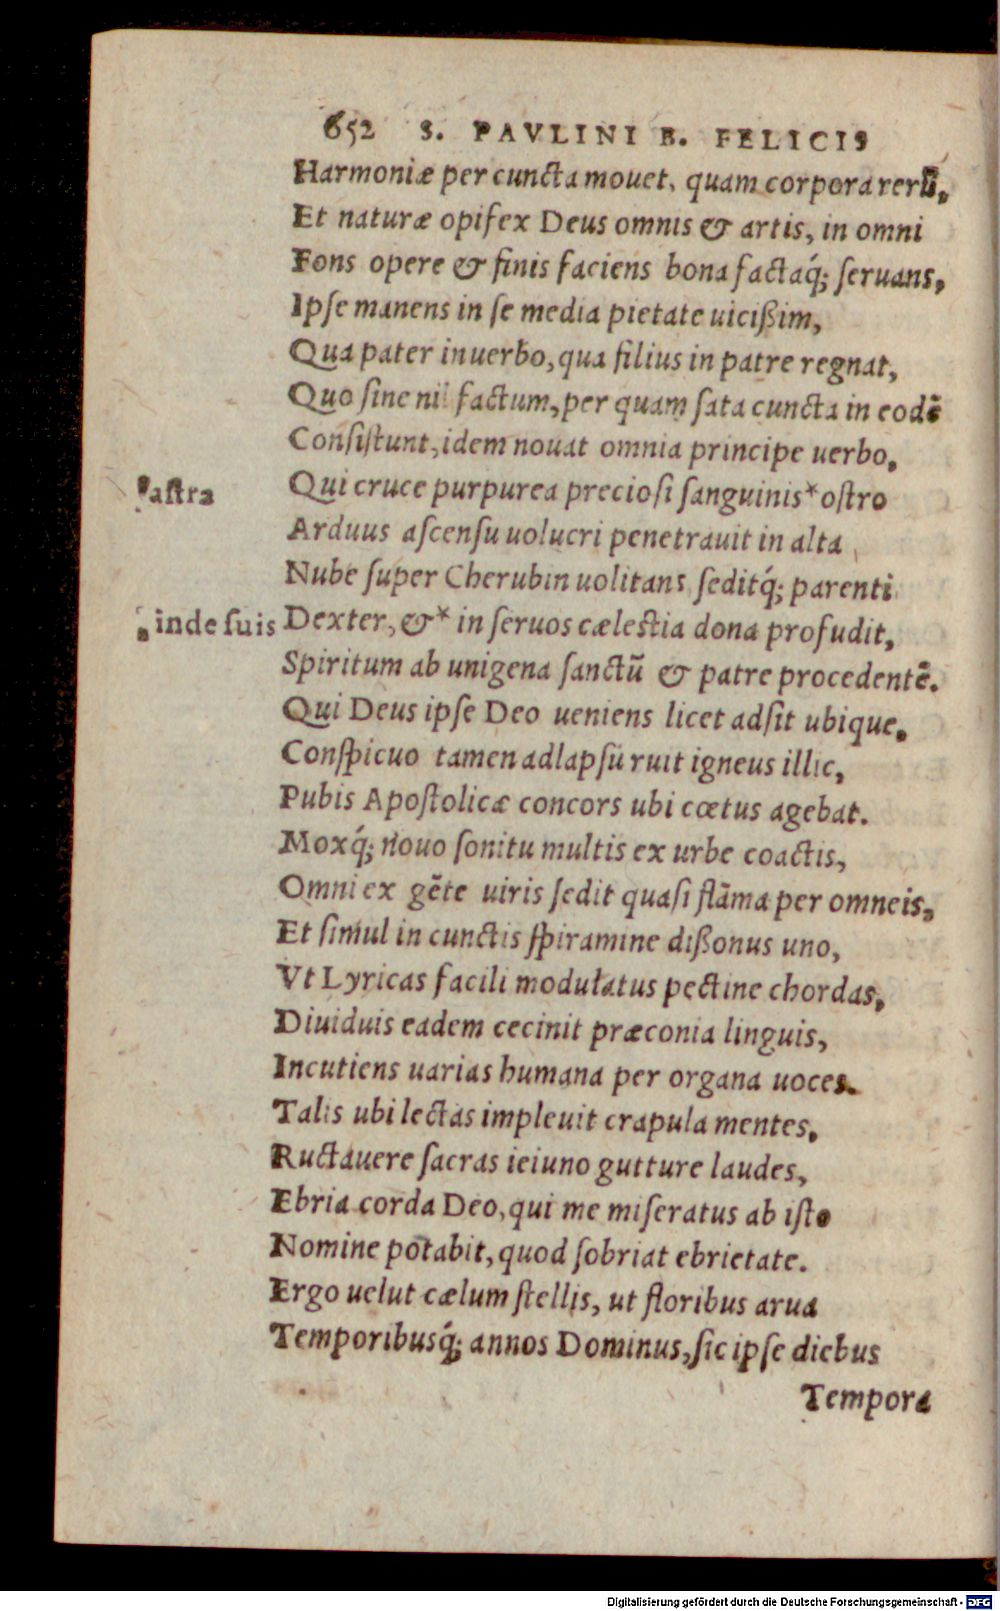 652 S. PAVLINI B. FELICIS
Harmoniæ per cuncta mouet, quam corpora rerū,
Et naturæ opifex Deus omnis & artis, in omni
Fons opere & finis faciens bona factaq́; ſeruans,
Ipſe manens in ſe media pietate uicißim,
Qua pater in uerbo, qua filius in patre regnat,
Quo ſine nil factum, per quam ſata cuncta in eodē
Conſiſtunt, idem nouat omnia principe uerbo,
*aſtra
Qui cruce purpurea precioſi ſanguinis* oſtro
Arduus aſcenſu uolucri penetrauit in alta
Nube ſuper Cherubin uolitans, ſeditq́; parenti
*inde ſuis
Dexter, &* in ſeruos cæleſtia dona profudit,
Spiritum ab unigena ſanctū & patre procedentē.
Qui Deus ipſe Deo ueniens licet adſit ubique,
Conſpicuo tamen adlapſu ruit igneus illic,
Pubis Apoſtolicæ concors ubi cœtus agebat.
Moxq́; nouo ſonitu multis ex urbe coactis,
Omni ex gēte uiris ſedit quaſi flāma per omneis,
Et ſimul in cunctis ſpiramine dißonus uno,
Vt Lyricas facili modulatus pectine chordas,
Diuiduis eadem cecinit præconia linguis,
Incutiens uarias humana per organa uoces.
Talis ubi lectas impleuit crapula mentes,
Ructauere ſacras ieiuno gutture laudes,
Ebria corda Deo, qui me miſeratus ab iſto
Nomine potabit, quod ſobriat ebrietate.
Ergo uelut cælum ſtellis, ut floribus arua
Temporibusq́; annos Dominus, ſic ipſe diebus
Tempora
Digitalisierung gefördert durch die Deutsche Forschungsgemeinschaft - DFG